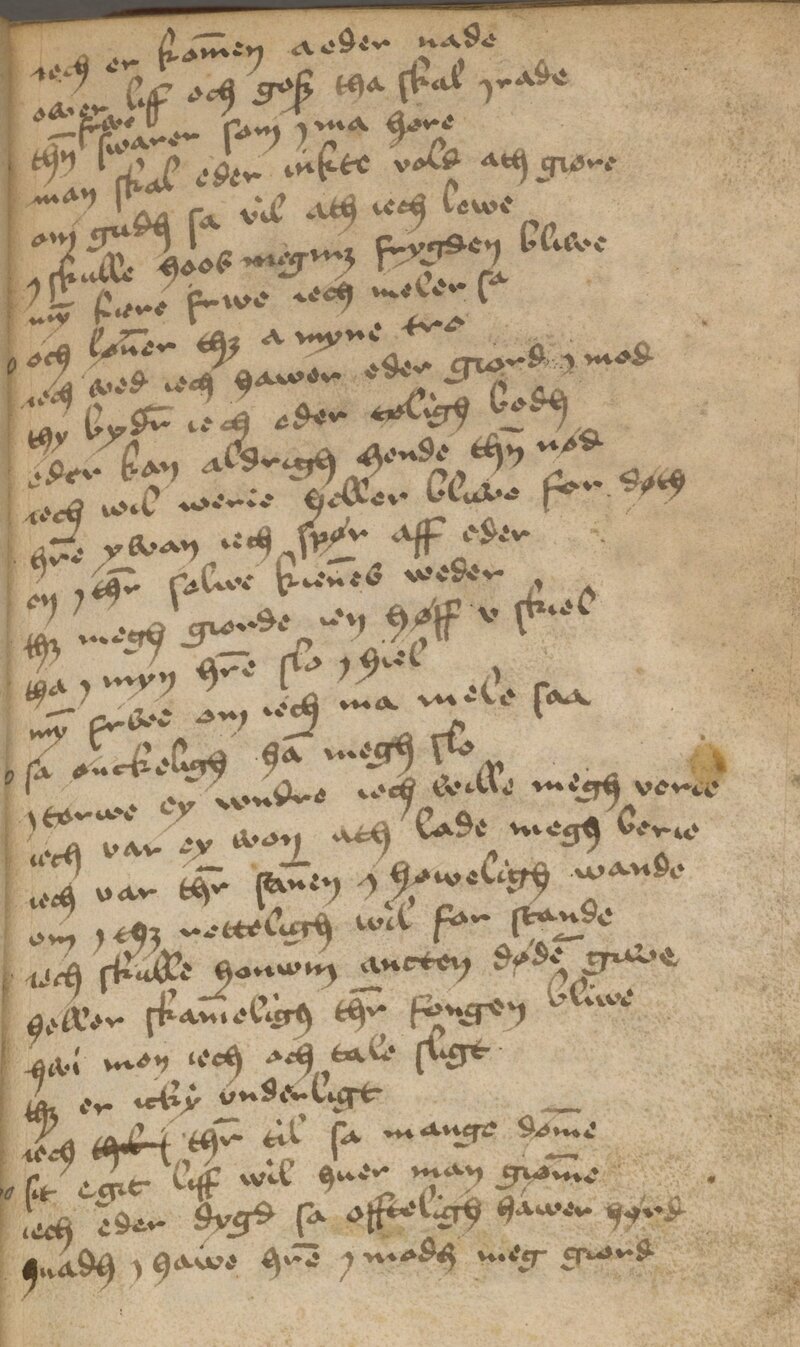 iech er kom̅en a eder nade
ower liff och gosz tha skal j rade
frwe
thn̅ swarer som j ma høre
man skal eder inkte vold ath giøre
om gudh sa vil ath iech lewe
j skulle hoos megmz frygden bliwe
my̅ kiere frwe iech meler so
och løn̅er thz a myne tro
iech wed iech hawer eder giord j mod
thy bydr̅ iech eder tøligh bodh
eder kan aldrigh hende thn̅ nød
iech wil werie heller bliwe for døth
hr̅e ywan iech spør aff eder
en j thr̅ selwe kien̅es weder
thz megh giorde ien høff v skiel
tha j myn hr̅e slo j hiel
my̅ frwe om iech ma mele saa
sa ønckeligh ha̅ megh slo
j tørwe ey wndre iech wille megh verie
iech var ey won ath lade megh berie
iech var thr̅ san̅en j høweligh wande
om j thz retteligh wil for stande
iech skulle honwm ancten døde̅ giwe
heller skam̅eligh thr̅ fongen bliwe
hwi mon iech och tale sligt
thz er icky vnderligt
iech thr̅ til sa mange døm̅e
sit egit liff wil huer man giøm̅e
iech eder dygd sa offteligh hawer hørd
huadh j hawe hr̅e j modh meg giord